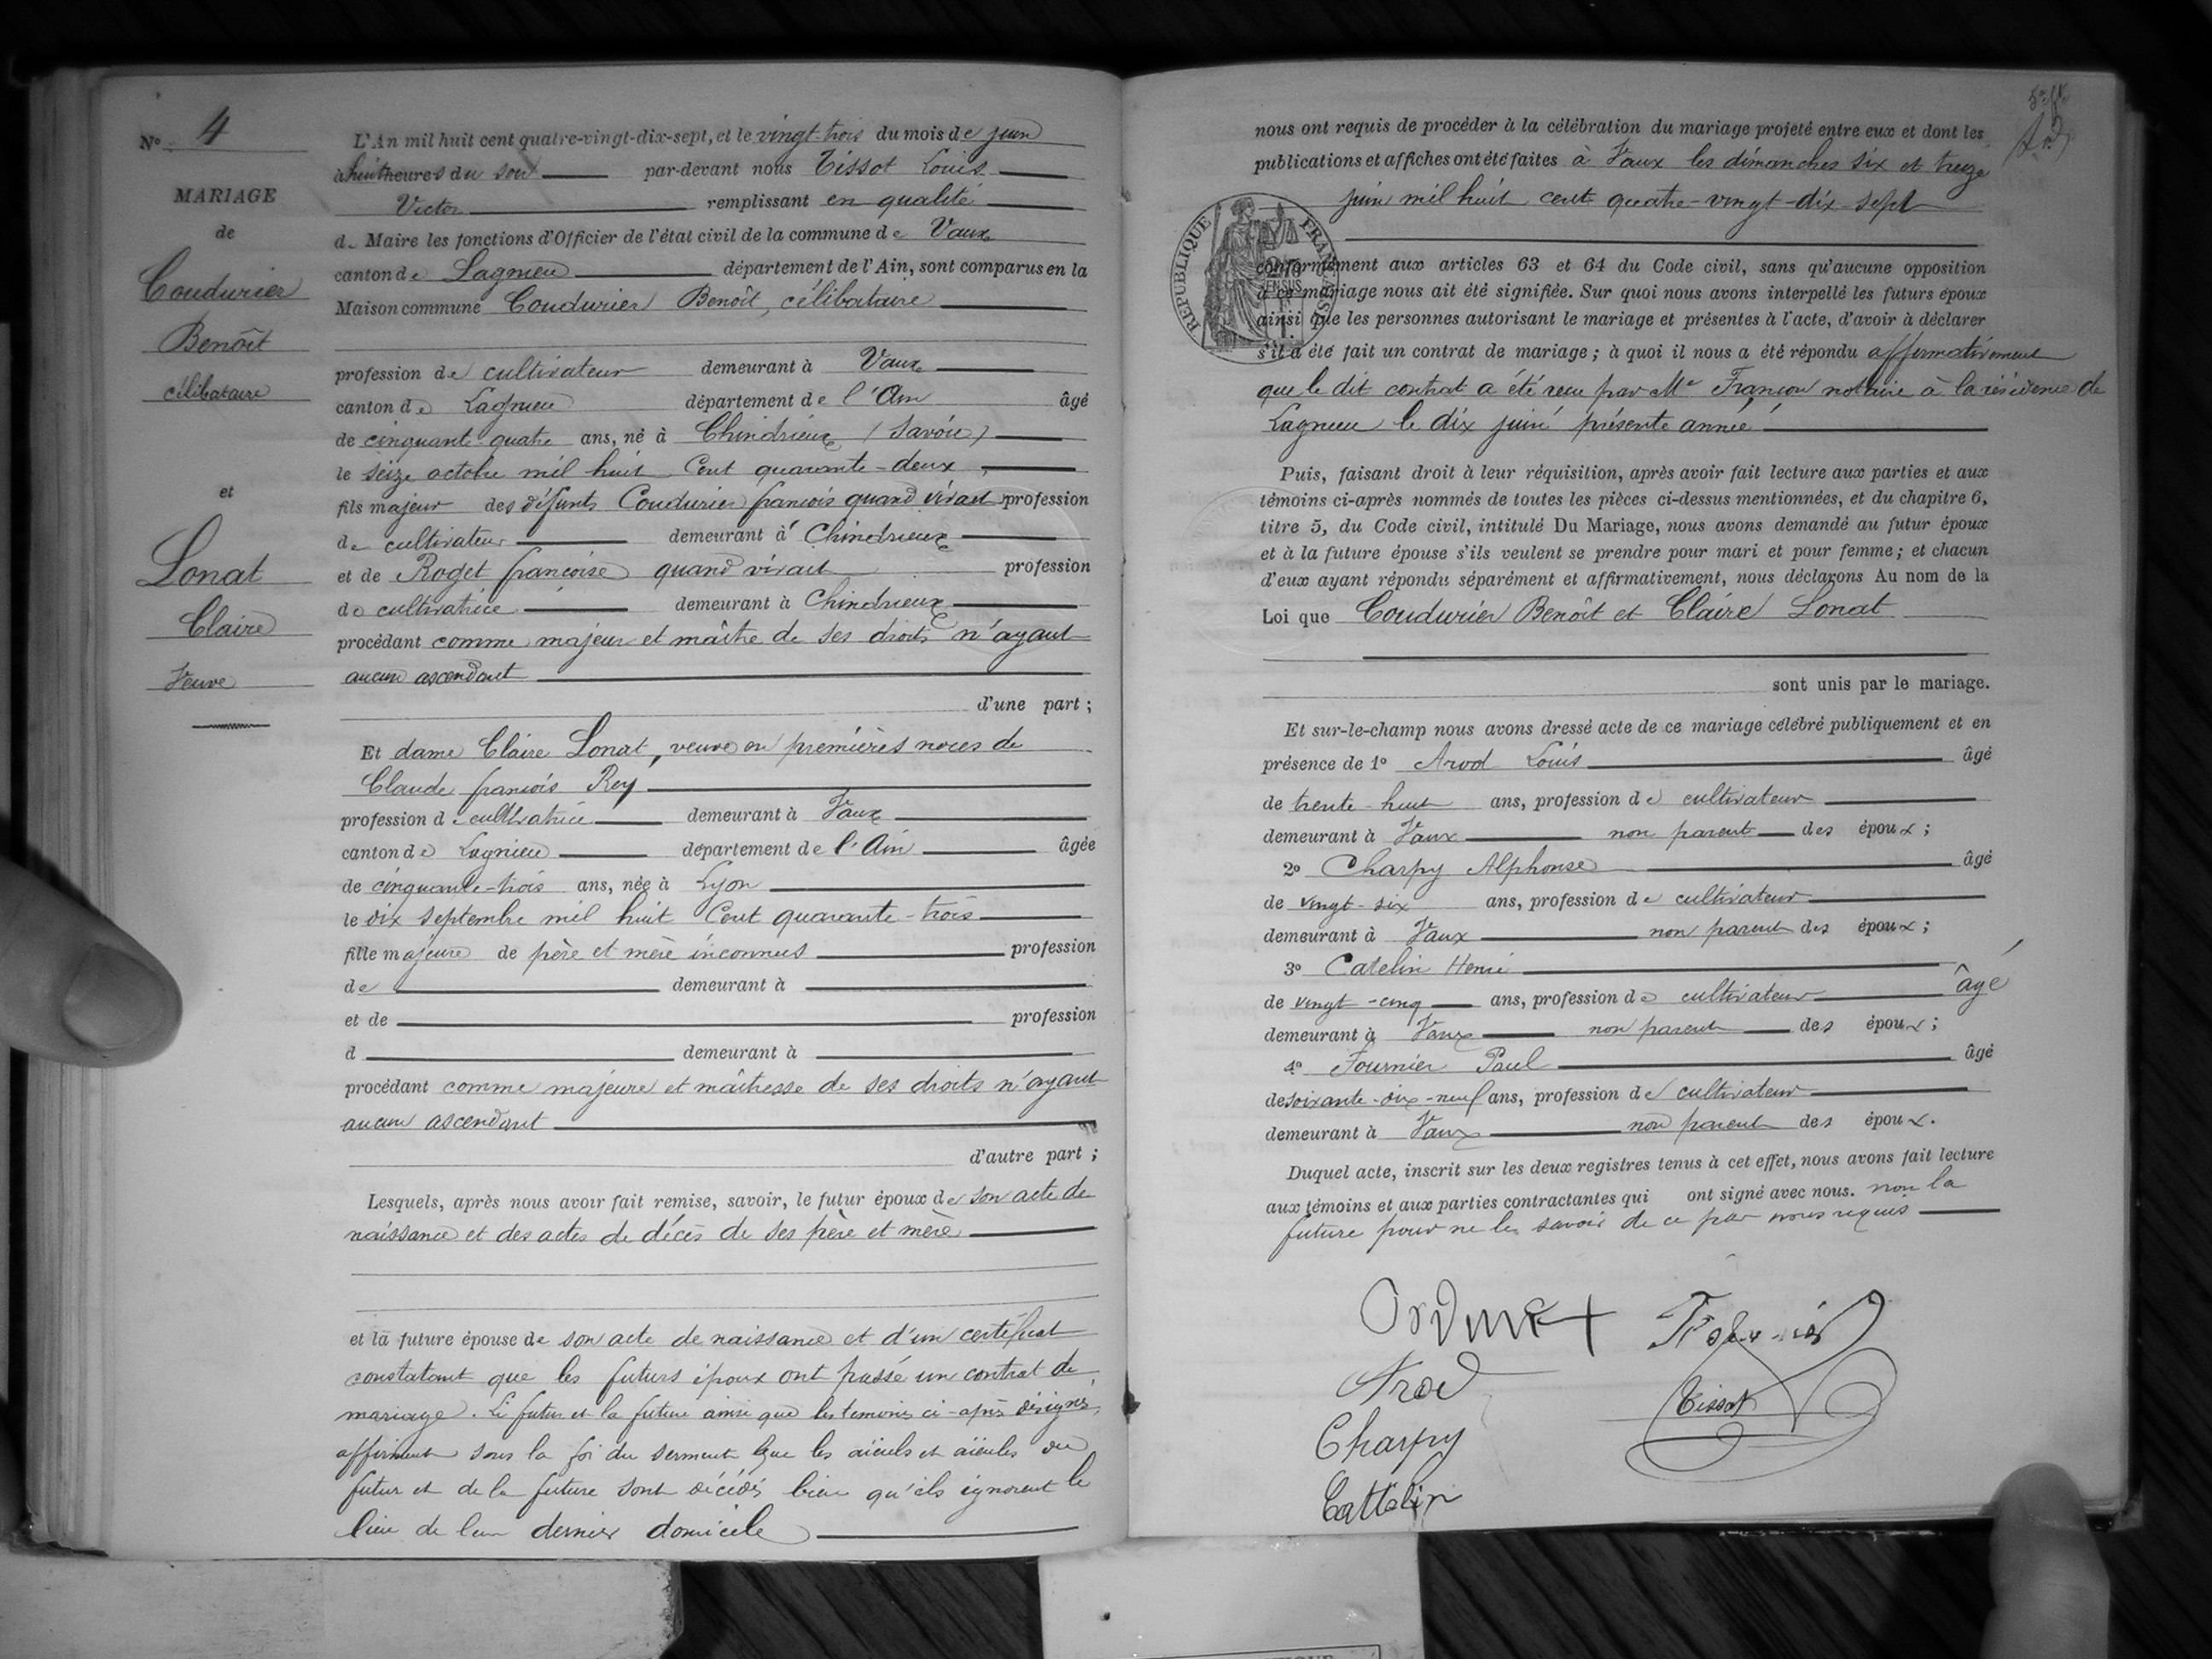 N° 4
MARIAGE
de
Coudurier
Benoît
célibataire
et
Lonat
Claire
Veuve
L'An mil huit cent quatre-vingt-dix-sept, et le vingt-trois du mois de juin
à huit heures du soir par-devant nous Tissot Louis
Victor remplissant en qualité
de Maire les fonctions d'Officier de l'état civil de la commune de Vaux
canton de Lagnieu département de l'Ain, sont comparus en la
Maison commune Coudurier Benoît, célibataire
profession de cultivateur demeurant à Vaux
canton de Lagnieu département de l'Ain âgé
de cinquante-quatre ans, né à Chindrieux (Savoie)
le seize octobre mil huit cent quarante-deux
fils majeur des défunts Coudurier françois quand vivait profession
de cultivateur demeurant à Chindrieux
et de Roget françoise quand vivait profession
de cultivatrice demeurant à Chindrieux
procédant comme majeur et maître de ses droits n'ayant
aucun ascendant
d'une part ;
Et dame Claire Lonat, veuve en premières noces de
Claude françois Rey
profession de cultivatrice demeurant à Vaux
canton de Lagnieu département de l'Ain âgée
de cinquante-trois ans, née à Lyon
le dix septembre mil huit cent quarante-trois
fille majeure de père et mère inconnus profession
de demeurant à
et de profession
d demeurant à
procédant comme majeure et maîtresse de ses droits n'ayant
aucun ascendant
d'autre part ;
Lesquels, après nous avoir fait remise, savoir, le futur époux de son acte de
naissance et des actes de décès de ses père et mère
et la future épouse de son acte de naissance et d'un certificat
constatant que les futurs époux ont passé un contrat de
mariage. Le futur et la future ainsi que les temoins ci-après désignés,
affirment sous la foi du serment que les aïeuls et aïeules du
futur et de la future sont décédés bien qu'ils ignorent le
lieu de leur dernier domicile
nous ont requis de procéder à la célébration du mariage projeté entre eux et dont les
publications et affiches ont été faites à Vaux les dimanches six et treize
juin mil huit cent quatre-vingt-dix-sept
RÉPUBLIQUE FRANÇAISE
conformément aux articles 63 et 64 du Code civil, sans qu'aucune opposition
à ce mariage nous ait été signifiée. Sur quoi nous avons interpellé les futurs époux
ainsi que les personnes autorisant le mariage et présentes à l'acte, d'avoir à déclarer
s'il a été fait un contrat de mariage ; à quoi il nous a été répondu affirmativement
que le dit contrat a été reçu par Me Françon notaire à la résidence de
Lagnieu le dix juin présente année
Puis, faisant droit à leur réquisition, après avoir fait lecture aux parties et aux
témoins ci-après nommés de toutes les pièces ci-dessus mentionnées, et du chapitre 6,
titre 5, du Code civil, intitulé Du Mariage, nous avons demandé au futur époux
et à la future épouse s'ils veulent se prendre pour mari et pour femme ; et chacun
d'eux ayant répondu séparément et affirmativement, nous déclarons Au nom de la
Loi que Coudurier Benoît et Claire Lonat
sont unis par le mariage.
Et sur-le-champ nous avons dressé acte de ce mariage célébré publiquement et en
présence de 1° Arod Louis âgé
de trente-huit ans, profession de cultivateur
demeurant à Vaux non parent des époux ;
2° Charpy Alphonse âgé
de vingt-six ans, profession de cultivateur
demeurant à Vaux non parent des époux ;
3° Catelin Henri
de vingt-cinq ans, profession de cultivateur âgé
demeurant à Vaux non parent des époux ;
4° Fournier Paul âgé
de soixante-dix-neuf ans, profession de cultivateur
demeurant à Vaux non parent des époux.
Duquel acte, inscrit sur les deux registres tenus à cet effet, nous avons fait lecture
aux témoins et aux parties contractantes qui ont signé avec nous. non la
future pour ne le savoir de ce par nous requis
Arod
Tissot
Charpy
Cattelin